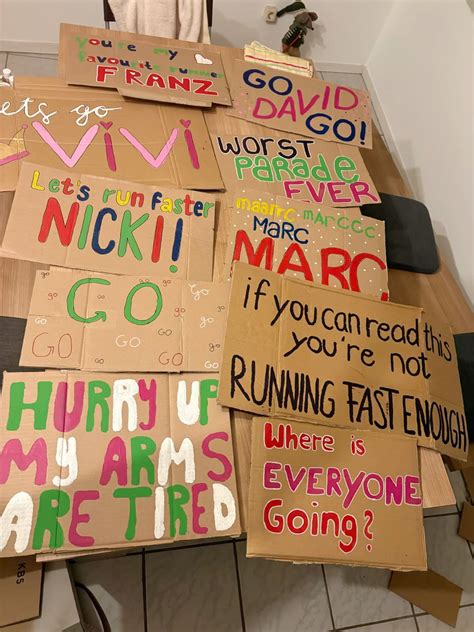 you're my
favourite runner
FRANZ
GO
DAVID
GO!
Lets go
VIVI
WORST
PARADE
EVER
Let's run faster
NICKI!
maarrc marccc
MARC
MARC
GO
go
go
go
GO
GO
Go
go
GO
if you can read this
you're not
RUNNING FAST ENOUGH
HURRY UP
MY ARMS
ARE TIRED
Where is
EVERYONE
Going?
KBS